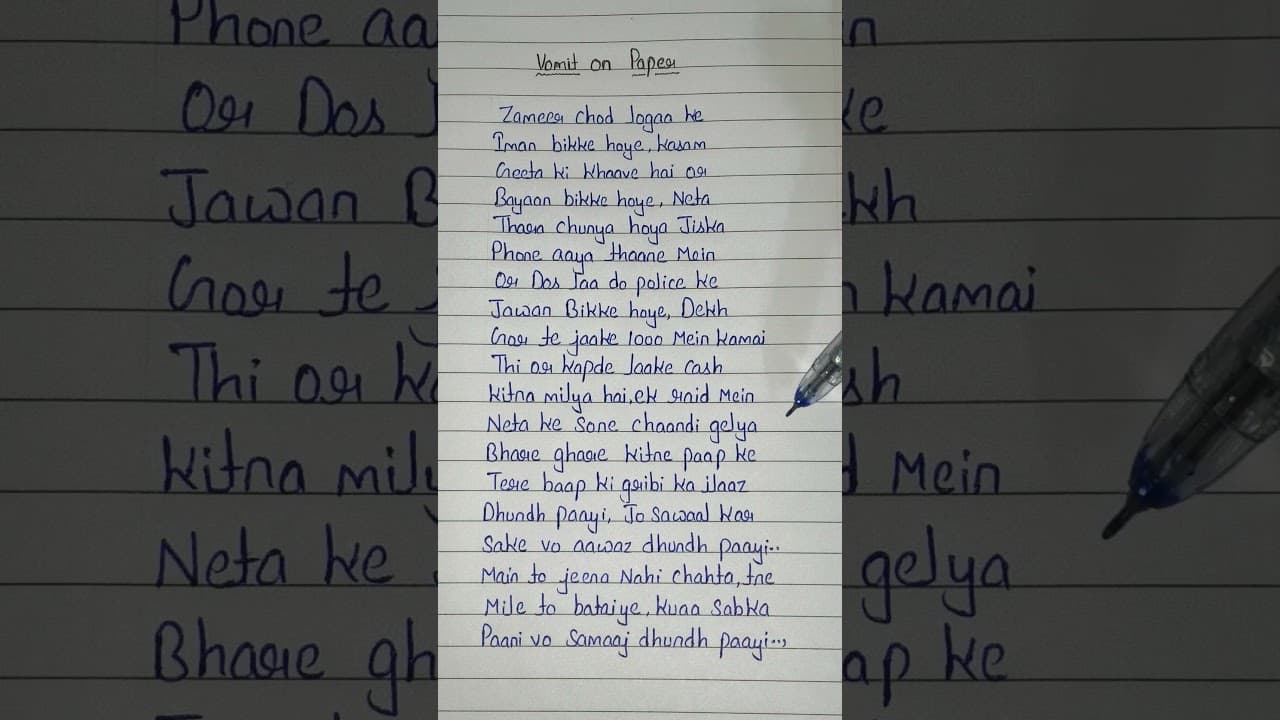 Vomit on Paper
Zameer chod logaa ke
Iman bikke hoye, kasam
Geeta ki khaave hai or
Bayaan bikke hoye, Neta
Thara chunya hoya Jiska
Phone aaya thaane Mein
Or Dos Jaa do police ke
Jawan Bikke hoye, Dekh
Gor te jaake 1000 Mein kamai
Thi or kapde Jaake cash
kitna milya hai, ek raid Mein
Neta ke Sone chaandi gelya
Bhare ghare kitne paap ke
Tere baap ki gribi ka ilaaz
Dhundh paayi, Jo Sawaal kar
Sake vo aawaz dhundh paayi..
Main to jeena Nahi chahta, tne
Mile to bataiye, kuaa Sabka
Paani vo Samaaj dhundh paayi...